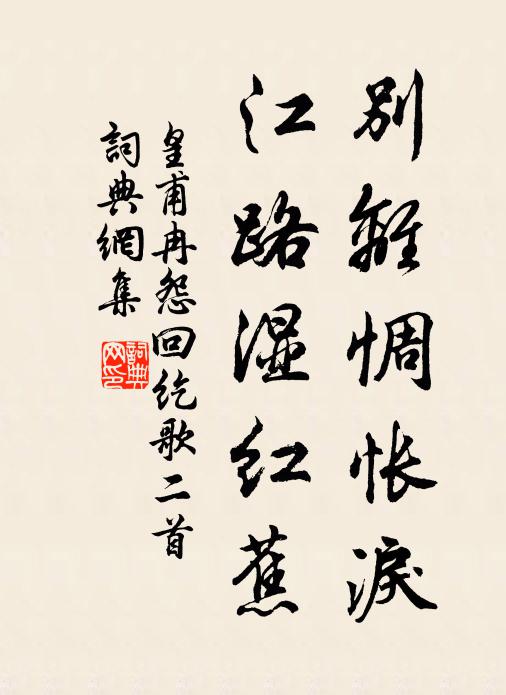 別離惆悵淚
江路湿紅蕉
皇甫冉怨回紇歌二首
詞典網集
詞典網印